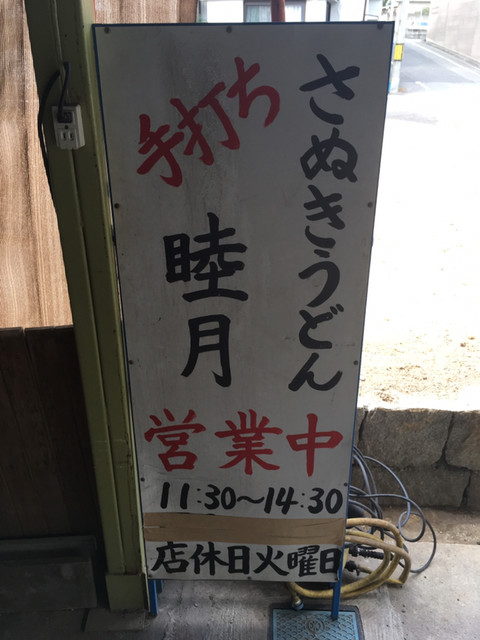 さぬきうどん
手打ち
睦月
営業中
11:30〜14:30
店休日火曜日